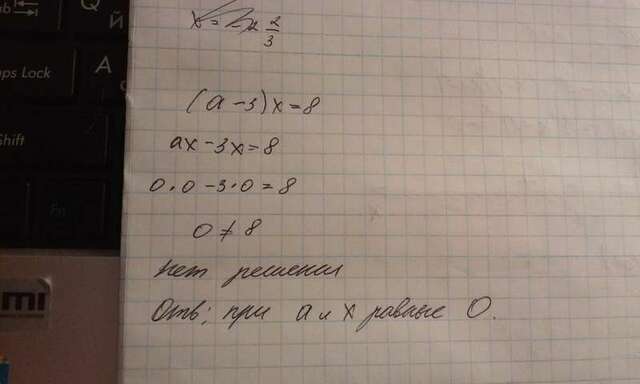 Q
Й
Caps Lock
A
Shift
Fn
mi
(a-3)x=8
ax-3x=8
0·0-3·0=8
0≠8
Нет решения
Отв: при a и x равные 0.